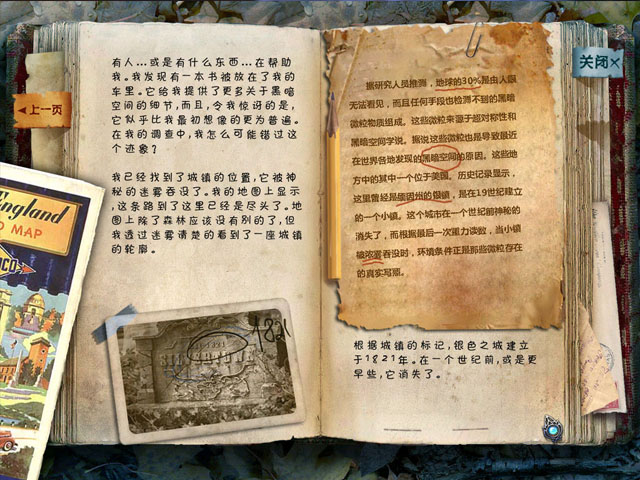 上一页
关闭×
有人...或是有什么东西...在帮助
我。我发现有一本书被放在了我的
车里。它给我提供了更多关于黑暗
空间的细节,而且,令我惊讶的是,
它似乎比我最初想像的更为普遍。
在我的调查中,我怎么可能错过这
个迹象?
我已经找到了城镇的位置,它被神
秘的迷雾吞没了。我的地图上显示
,这条路到了这里已经是尽头了。地
图上除了森林应该没有别的了,但
我透过迷雾清楚的看到了一座城镇
的轮廓。
England
MAP
1821
据研究人员推测,地球的30%是由人眼
无法看见,而且任何手段也检测不到的黑暗
微粒物质组成。这些微粒来源于超对称性和
黑暗空间学说。据说这些微粒也是导致最近
在世界各地发现的黑暗空间的原因。这些地
方中的其中一个位于美国。历史记录显示,
这里曾经是缅因州的银镇,是在19世纪建立
的一个小镇。这个城市在一个世纪前神秘的
消失了,而根据最后一次重力读数,当小镇
被浓雾吞没时,环境条件正是那些微粒存在
的真实写照。
根据城镇的标记,银色之城建立
于1821年。在一个世纪前,或是更
早些,它消失了。